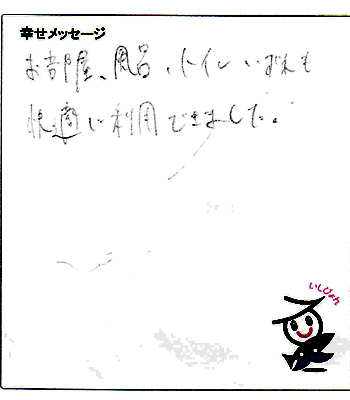 幸せメッセージ
お部屋、風呂、トイレいずれも
快適に利用できました。